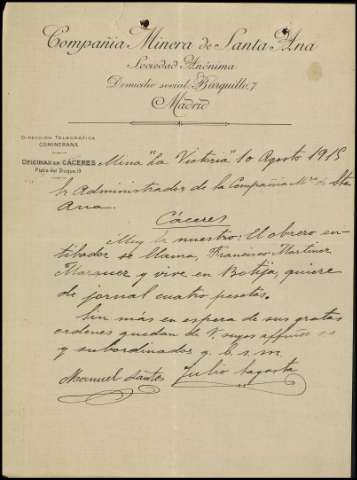 Compañia Minera de Santa Ana
Sociedad Anónima
Domicilio social, Barquillo, 7
Madrid
DIRECCIÓN TELEGRÁFICA
COMINERANA
OFICINAS EN CÁCERES
Plaza del Duque
Mina "La Victoria" 10 Agosto 1915
Sr Administrador de la Compañia Mra de Sta
Ana.
Cáceres
Muy Sr nuestro: El obrero en-
tibador se llama, Francisco Martinez
Marquez y vive en Botija, quiere
de jornal cuatro pesetas.
Sin más en espera de sus gratas
ordenes quedan de V. suyos affmos s s
y subordinados q. b. s. m.
Manuel Santos Julio Sagasta